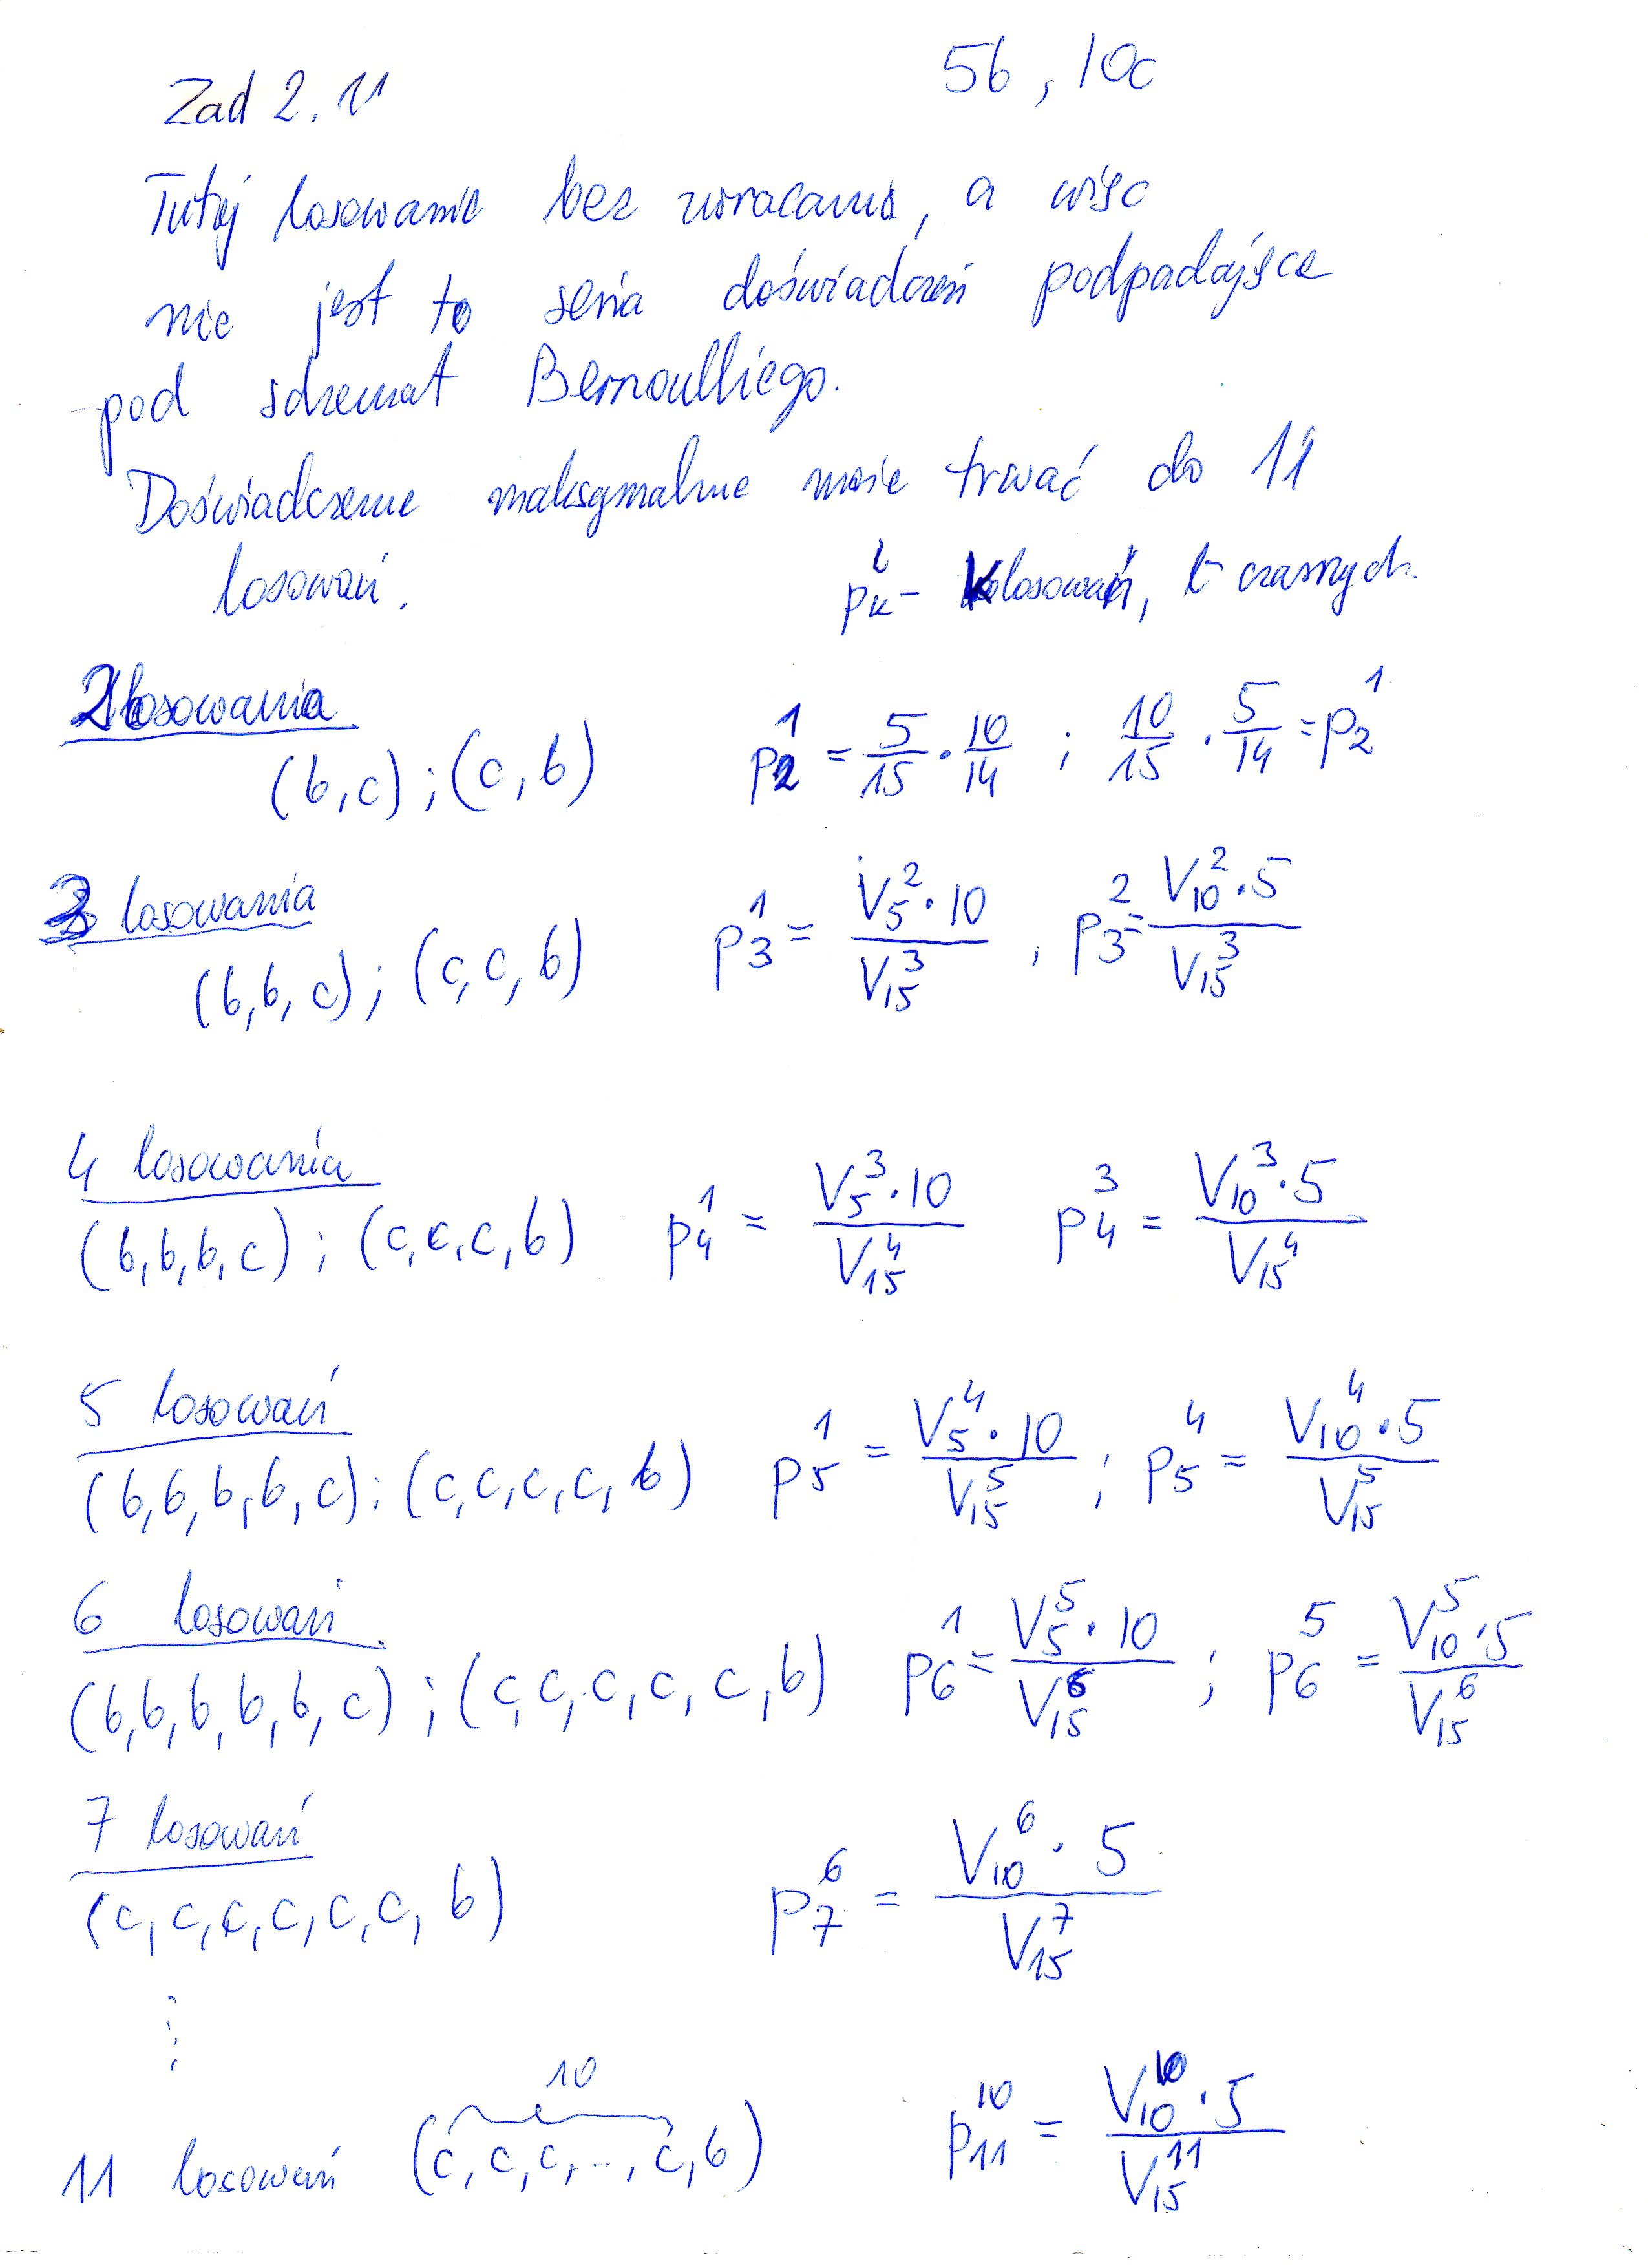 Zad 2.11
5b, 10c
Tutaj losowanie bez zwracania, a więc
nie jest to seria doświadczeń podpadające
pod schemat Bernoulliego.
Doświadczenie maksymalnie może trwać do 11
losowań.
p_k^l - k losowań, l czarnych.
2 losowania
(b,c); (c,b) p_2^1 = 5/15 · 10/14 ; 10/15 · 5/14 = p_2^1
3 losowania
(b,b,c); (c,c,b) p_3^1 = V_5^2·10 / V_15^3 , p_3^2 = V_10^2·5 / V_15^3
4 losowania
(b,b,b,c); (c,c,c,b) p_4^1 = V_5^3·10 / V_15^4 p_4^3 = V_10^3·5 / V_15^4
5 losowań
(b,b,b,b,c); (c,c,c,c,b) p_5^1 = V_5^4·10 / V_15^5 ; p_5^4 = V_10^4·5 / V_15^5
6 losowań
(b,b,b,b,b,c); (c,c,c,c,c,b) p_6^1 = V_5^5·10 / V_15^6 ; p_6^5 = V_10^5·5 / V_15^6
7 losowań
(c,c,c,c,c,c,b) p_7^6 = V_10^6·5 / V_15^7
⋮
10
11 losowań (c,c,c,...,c,b) p_11^10 = V_10^10·5 / V_15^11